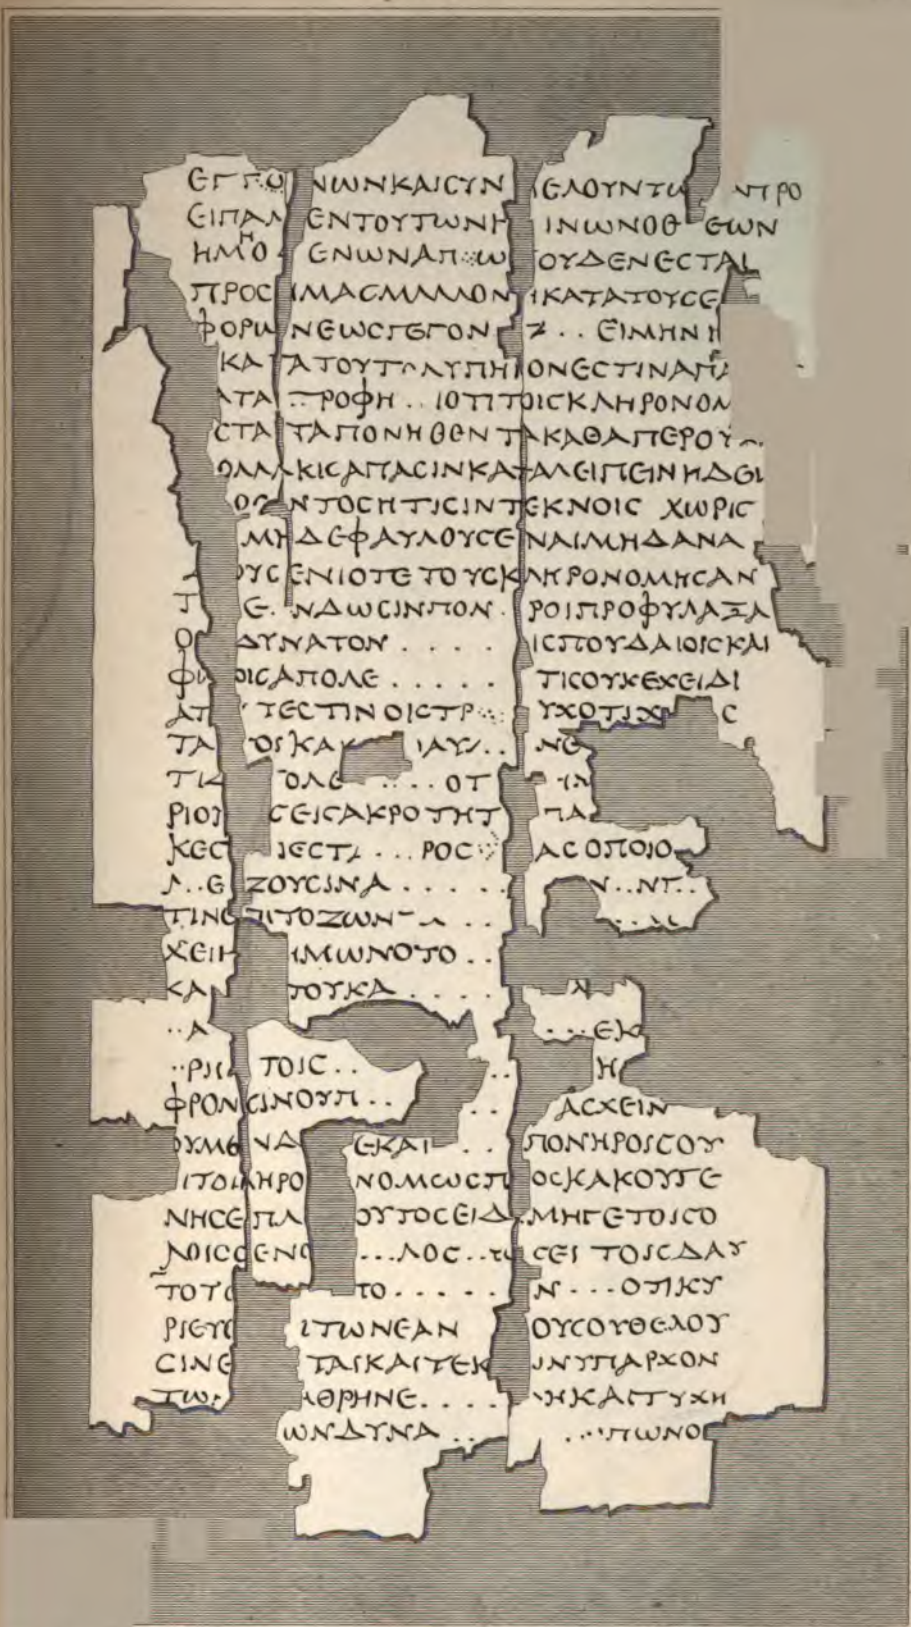 ΕΓΓΟ ΝΩΝΚΑΙСΥΝ ΙΕΛΟΥΝΤΩ ΝΠΡΟ
ΕΙΠΑΛ ΕΝΤΟΥΤΩΝΗ ΙΝΩΝΟΘ ΕΩΝ
ΗΜΟ ΕΝΩΝΑΠ..Ω ΟΥΔΕΝΕСΤΑΙ
ΠΡΟС ΙΜΑСΜΑΛΛΟΝ ΙΚΑΤΑΤΟΥСΕ
ΦΟΡΙΩ ΝΕΩСΓΕΓΟΝ Ζ . . ΕΙΜΗΝΗ
ΚΑΙ ΤΑΤΟΥΤ ΛΥΠΗΙ ΟΝΕСΤΙΝΑΠΑ
ΑΤΑ . . ΤΡΟΦΗ . . ΙΟΤΙΤΟΙСΚΛΗΡΟΝΟΜ
СΤΑΙ ΤΑΠΟΝΗΘΕΝΤΑΚΑΘΑΠΕΡΟΥ
ΟΛΛΑΚΙСΑΠΑСΙΝΚΑΤΑΛΕΙΠΕΙΝΗΔΕΙ
ΟС ΝΤΟСΗΤΙСΙΝΤΕΚΝΟΙС ΧΩΡΙС
ΜΗΔΕΦΑΥΛΟΥСΕΙΝΑΙΜΗΔΑΝΑ
ΟΥС ΕΝΙΟΤΕΤΟΥСΚΛΗΡΟΝΟΜΗСΑΝ
Τ Ε . ΝΔΩСΙΝΠΟΝ . ΡΟΙΠΡΟΦΥΛΑΞΑ
ΟΙ ΔΥΝΑΤΟΝ . . . . . ΙСΠΟΥΔΑΙΟΙСΚΑΙ
ΦΙ ΟΙСΑΠΟΛΕ . . . . . ΤΙСΟΥΚΕΧΕΙΔΙ
ΑΠ ΤΕСΤΙΝΟΙСΤΡ . . ΥΧΟΤΙΧΙ С
ΤΑ ΟΙΚΑΚ ΙΑΥ . . ΝΕ
ΤΙ ΟΛΕ . . . . ΟΤ ΙΛ
ΡΙΟΥ СΕΙСΑΚΡΟΤΗΤ ΠΑ
ΚΕС ΙΕСΤ . . . ΡΟС . . ΑСΟΠΟΙΟ
Λ . . Ε ΖΟΥСΙΝΑ . . . . . Ν . . ΝΤ . .
ΤΙΝΕ ΠΙΤΟΖΩΝ . Λ . .
ΧΕΙΗ ΙΜΩΝΟΤΟ . .
ΚΑΙ ΤΟΥΚΑ . . . . Α
. . Α . . . ΕΚ
. . ΡΙΙ ΤΟΙС . . . . Η
ΦΡΟΝ СΙΝΟΥΠ . . . . ΑСΧΕΙΝ
ΟΥΜΕ ΝΔ ΕΚΑΙ . . ΠΟΝΗΡΟΙСΟΥ
ΙΤΟΙ ΛΗΡΟ ΝΟΜΩСΠ ΟСΚΑΚΟΥΓΕ
ΝΗСΕ ΠΛ ΟΥΤΟСΕΙΔ ΜΗΓΕΤΟΙСΟ
ΛΟΙСΟ ΕΝΟ . . . ΛΟС . . ΤΩ СΕΙ ΤΟΙСΔΑΥ
ΤΟΤ ΤΟ . . . . . Ν . . . ΟΤΙΚΥ
ΡΙΕΥ ΙΤΩΝΕΑΝ ΟΥСΟΥΘΕΛΟΥ
СΙΝΕ ΤΑΙΚΑΙΤΕΚ ΙΝΥΠΑΡΧΟΝ
ΤΩ ΑΘΡΗΝΕ . . . . ΗΚΑΙΤΥΧΗ
ΩΝΔΥΝΑ . . . . . ΠΩΝΟ